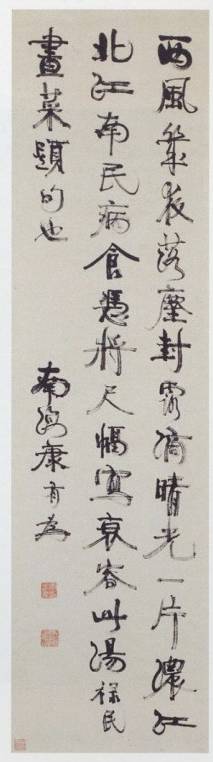 西風幾夜落塵封露滴晴光一片濃江
北江南民病食憑將尺幅寫哀容此湯祿民
畫菜題句也
南海康有為